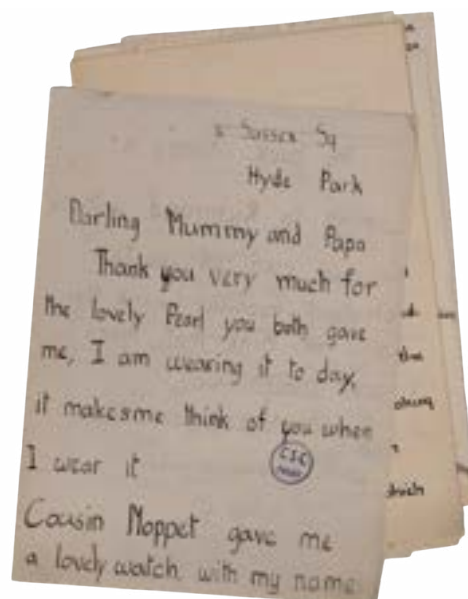 2 Sussex Sq
Hyde Park
Darling Mummy and Papa
Thank you very much for
the lovely Pearl you both gave
me, I am wearing it to day,
it makes me think of you when
I wear it
CSC
Cousin Moppet gave me
a lovely watch, with my name